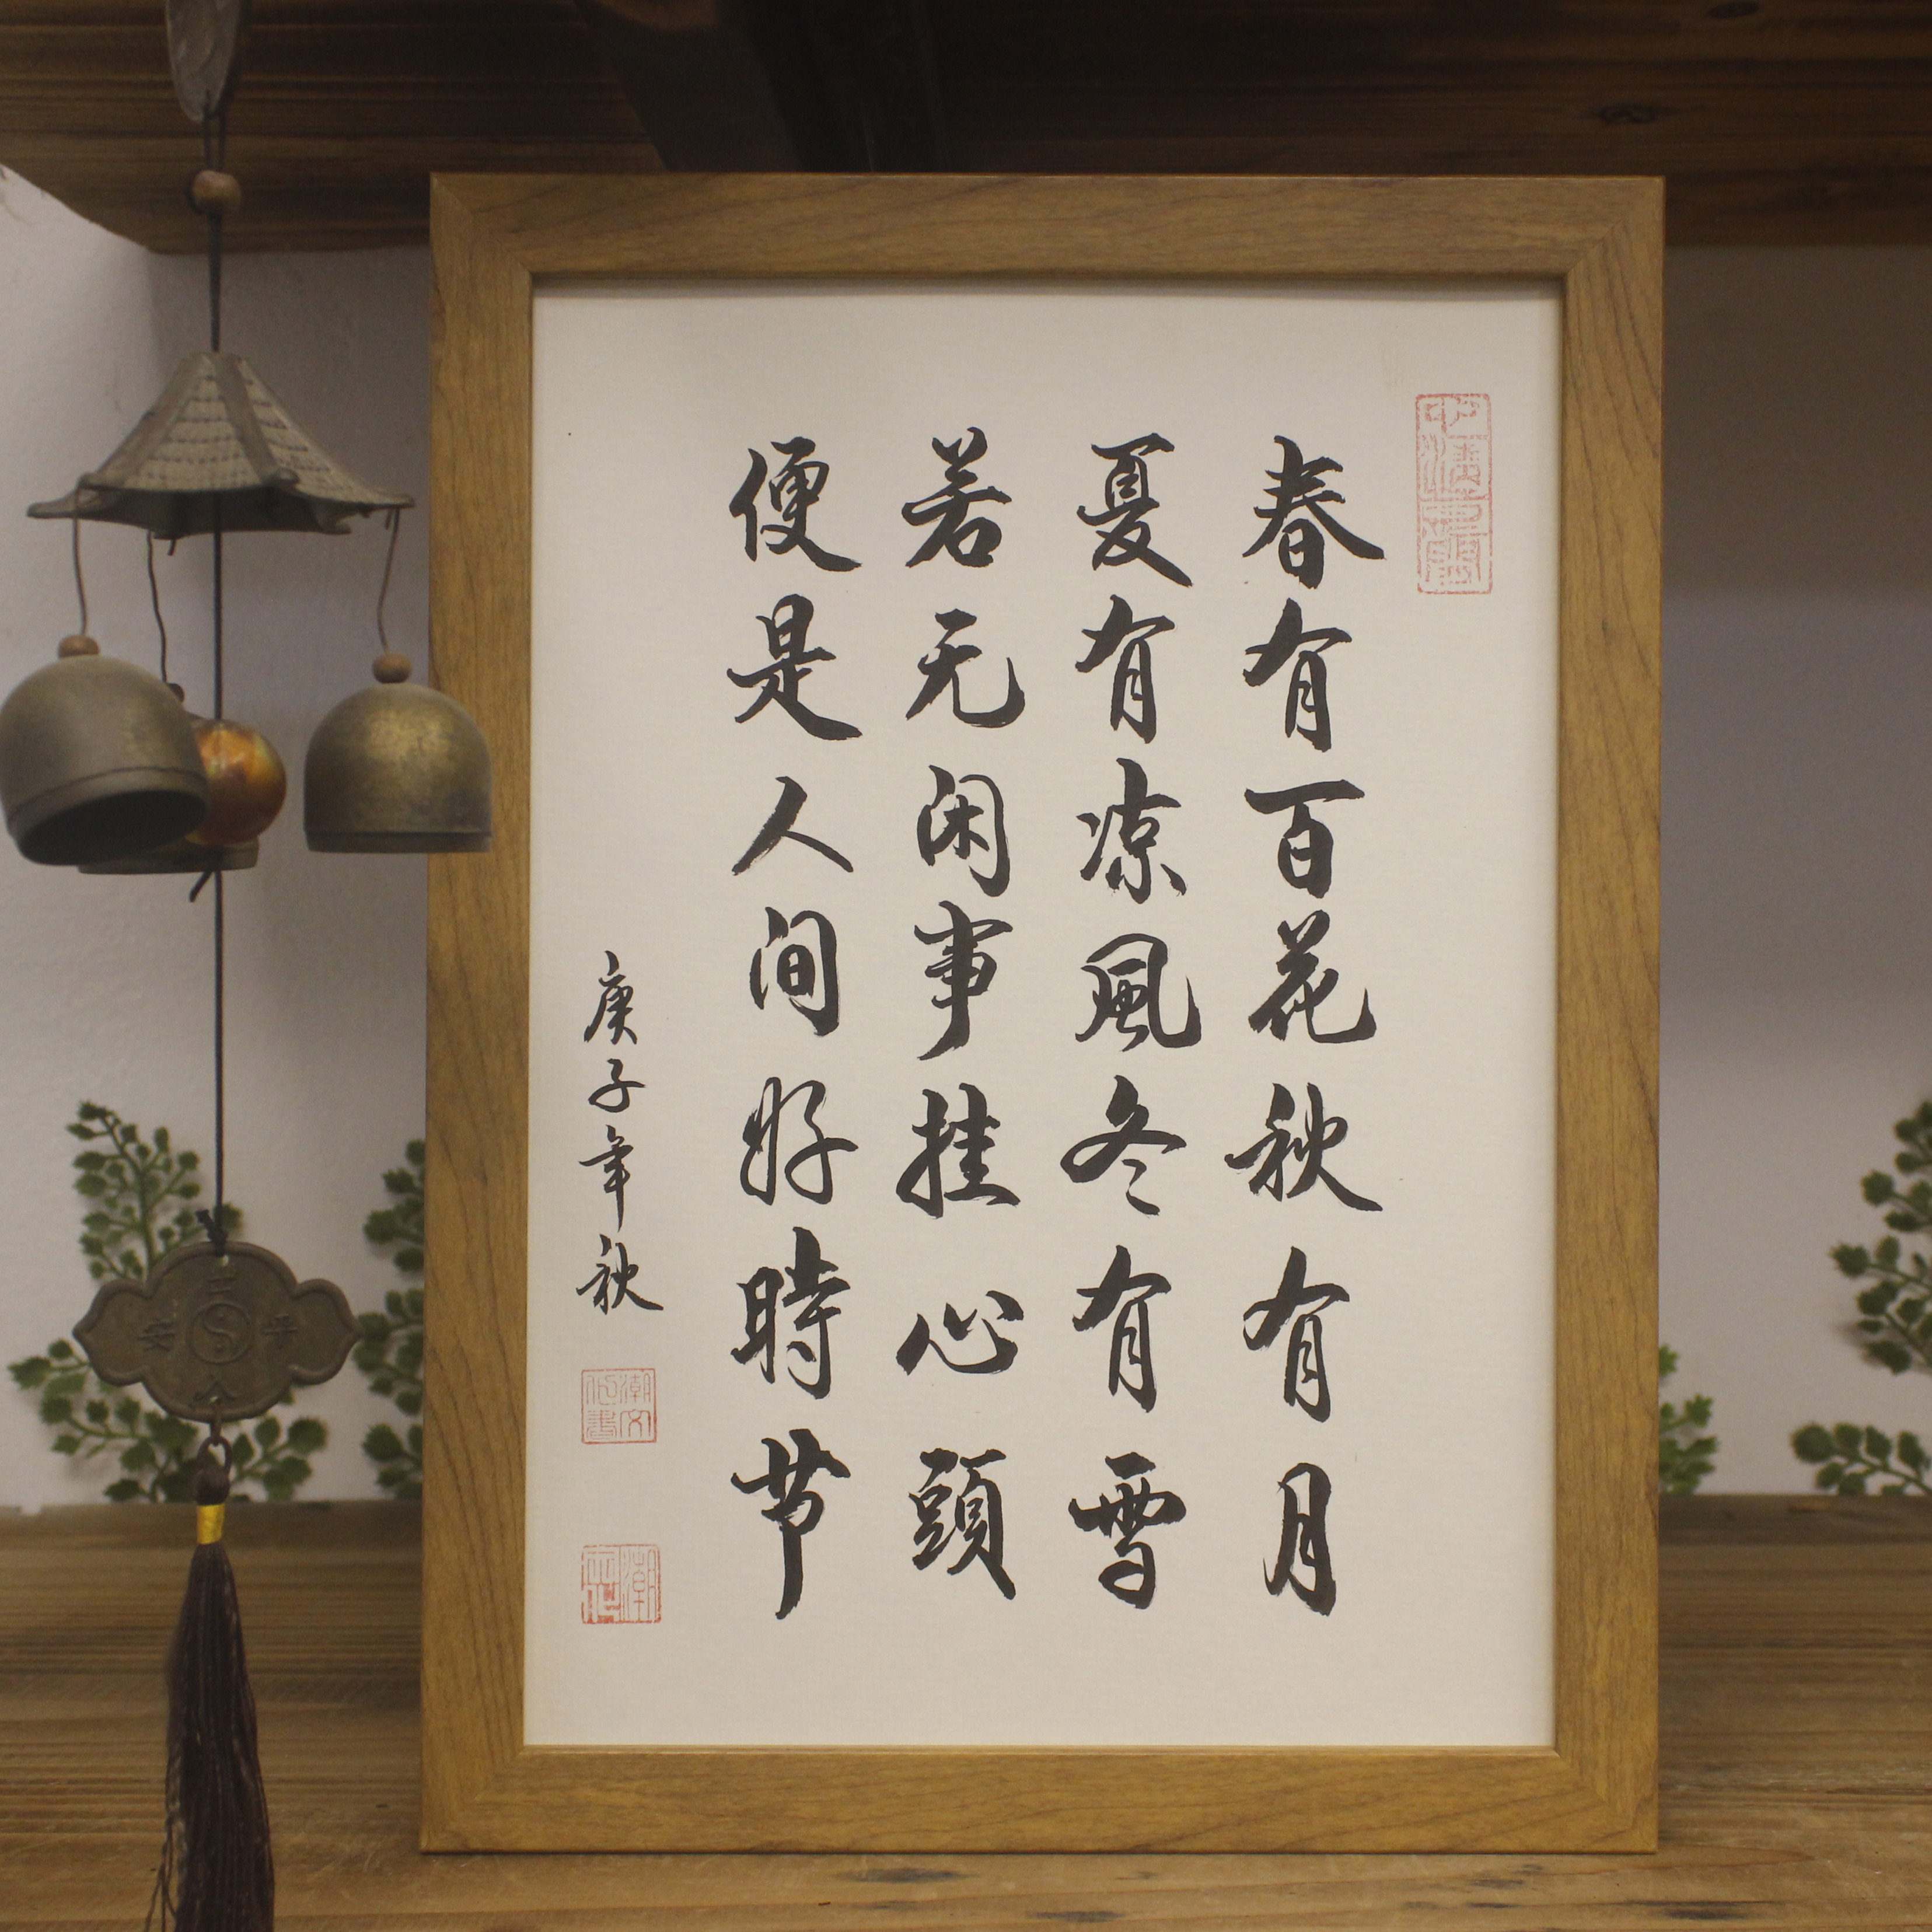 春有百花秋有月
夏有凉風冬有雪
若无闲事挂心頭
便是人间好時节
庚子年秋